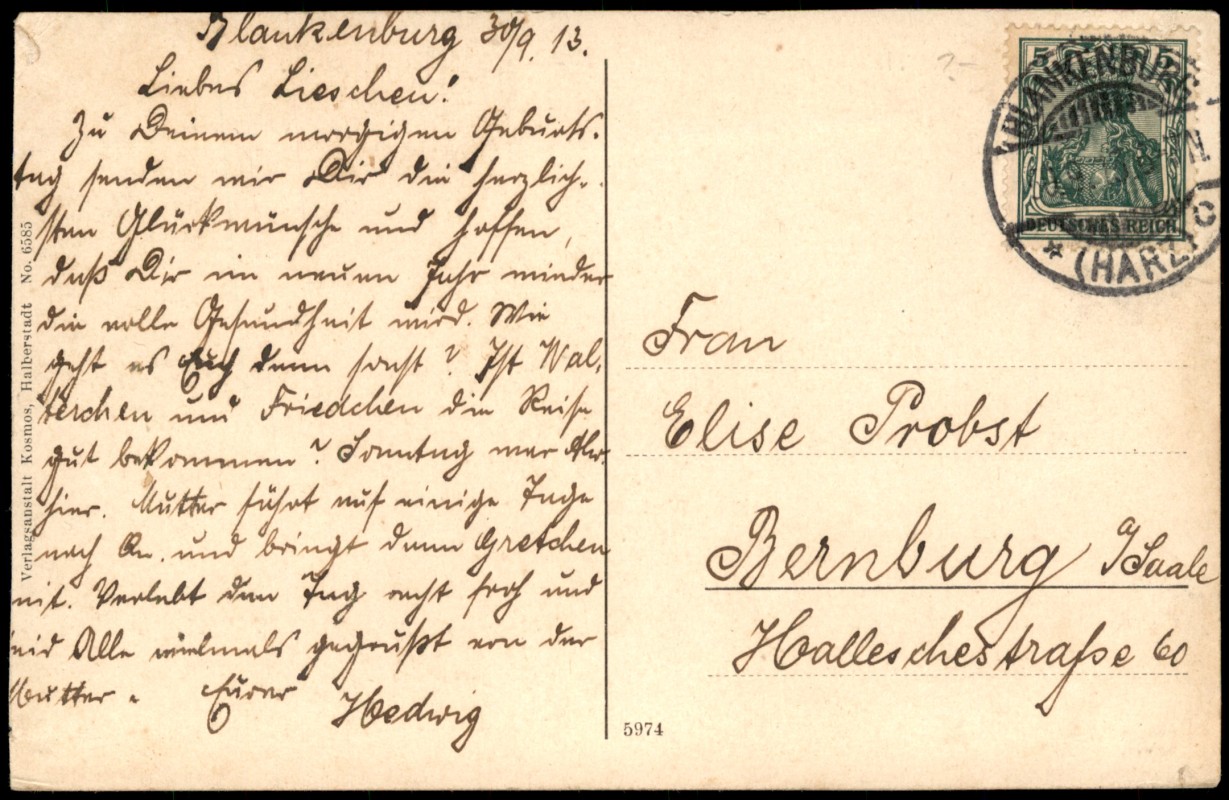 Blankenburg 30/9. 13.
Liebes Lieschen!
Zu Deinem morgigen Geburts-
tag senden wir Dir die herzlich-
sten Glückwünsche und hoffen,
daß Dir im neuen Jahr wieder
die volle Gesundheit wird. Wie
geht es Euch denn sonst? Ist Wal-
terchen und Friedchen die Reise
gut bekommen? Sonntag war
hier. Mutter fährt auf einige Tage
nach und bringt dann Gretchen
mit. Verlebt den Tag recht froh und
seid Alle vielmals gegrüßt von der
Mutter u. Eurer Hedwig
Verlagsanstalt Kosmos, Halberstadt No. 6585
5974
5 5
DEUTSCHES REICH
BLANKENBURG
* (HARZ) C
Frau
Elise Probst
Bernburg a/Saale
Halleschestraße 60